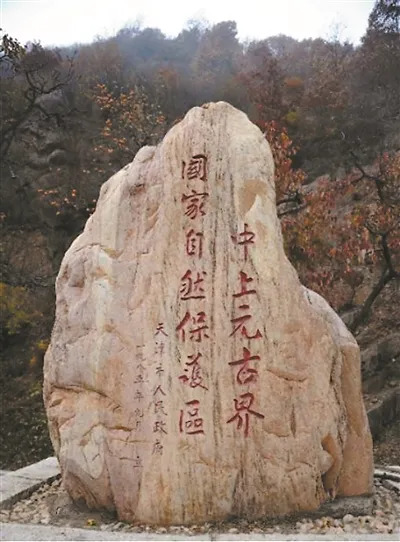 中上元古界
國家自然保護區
天津市人民政府
一九八五年九月 立